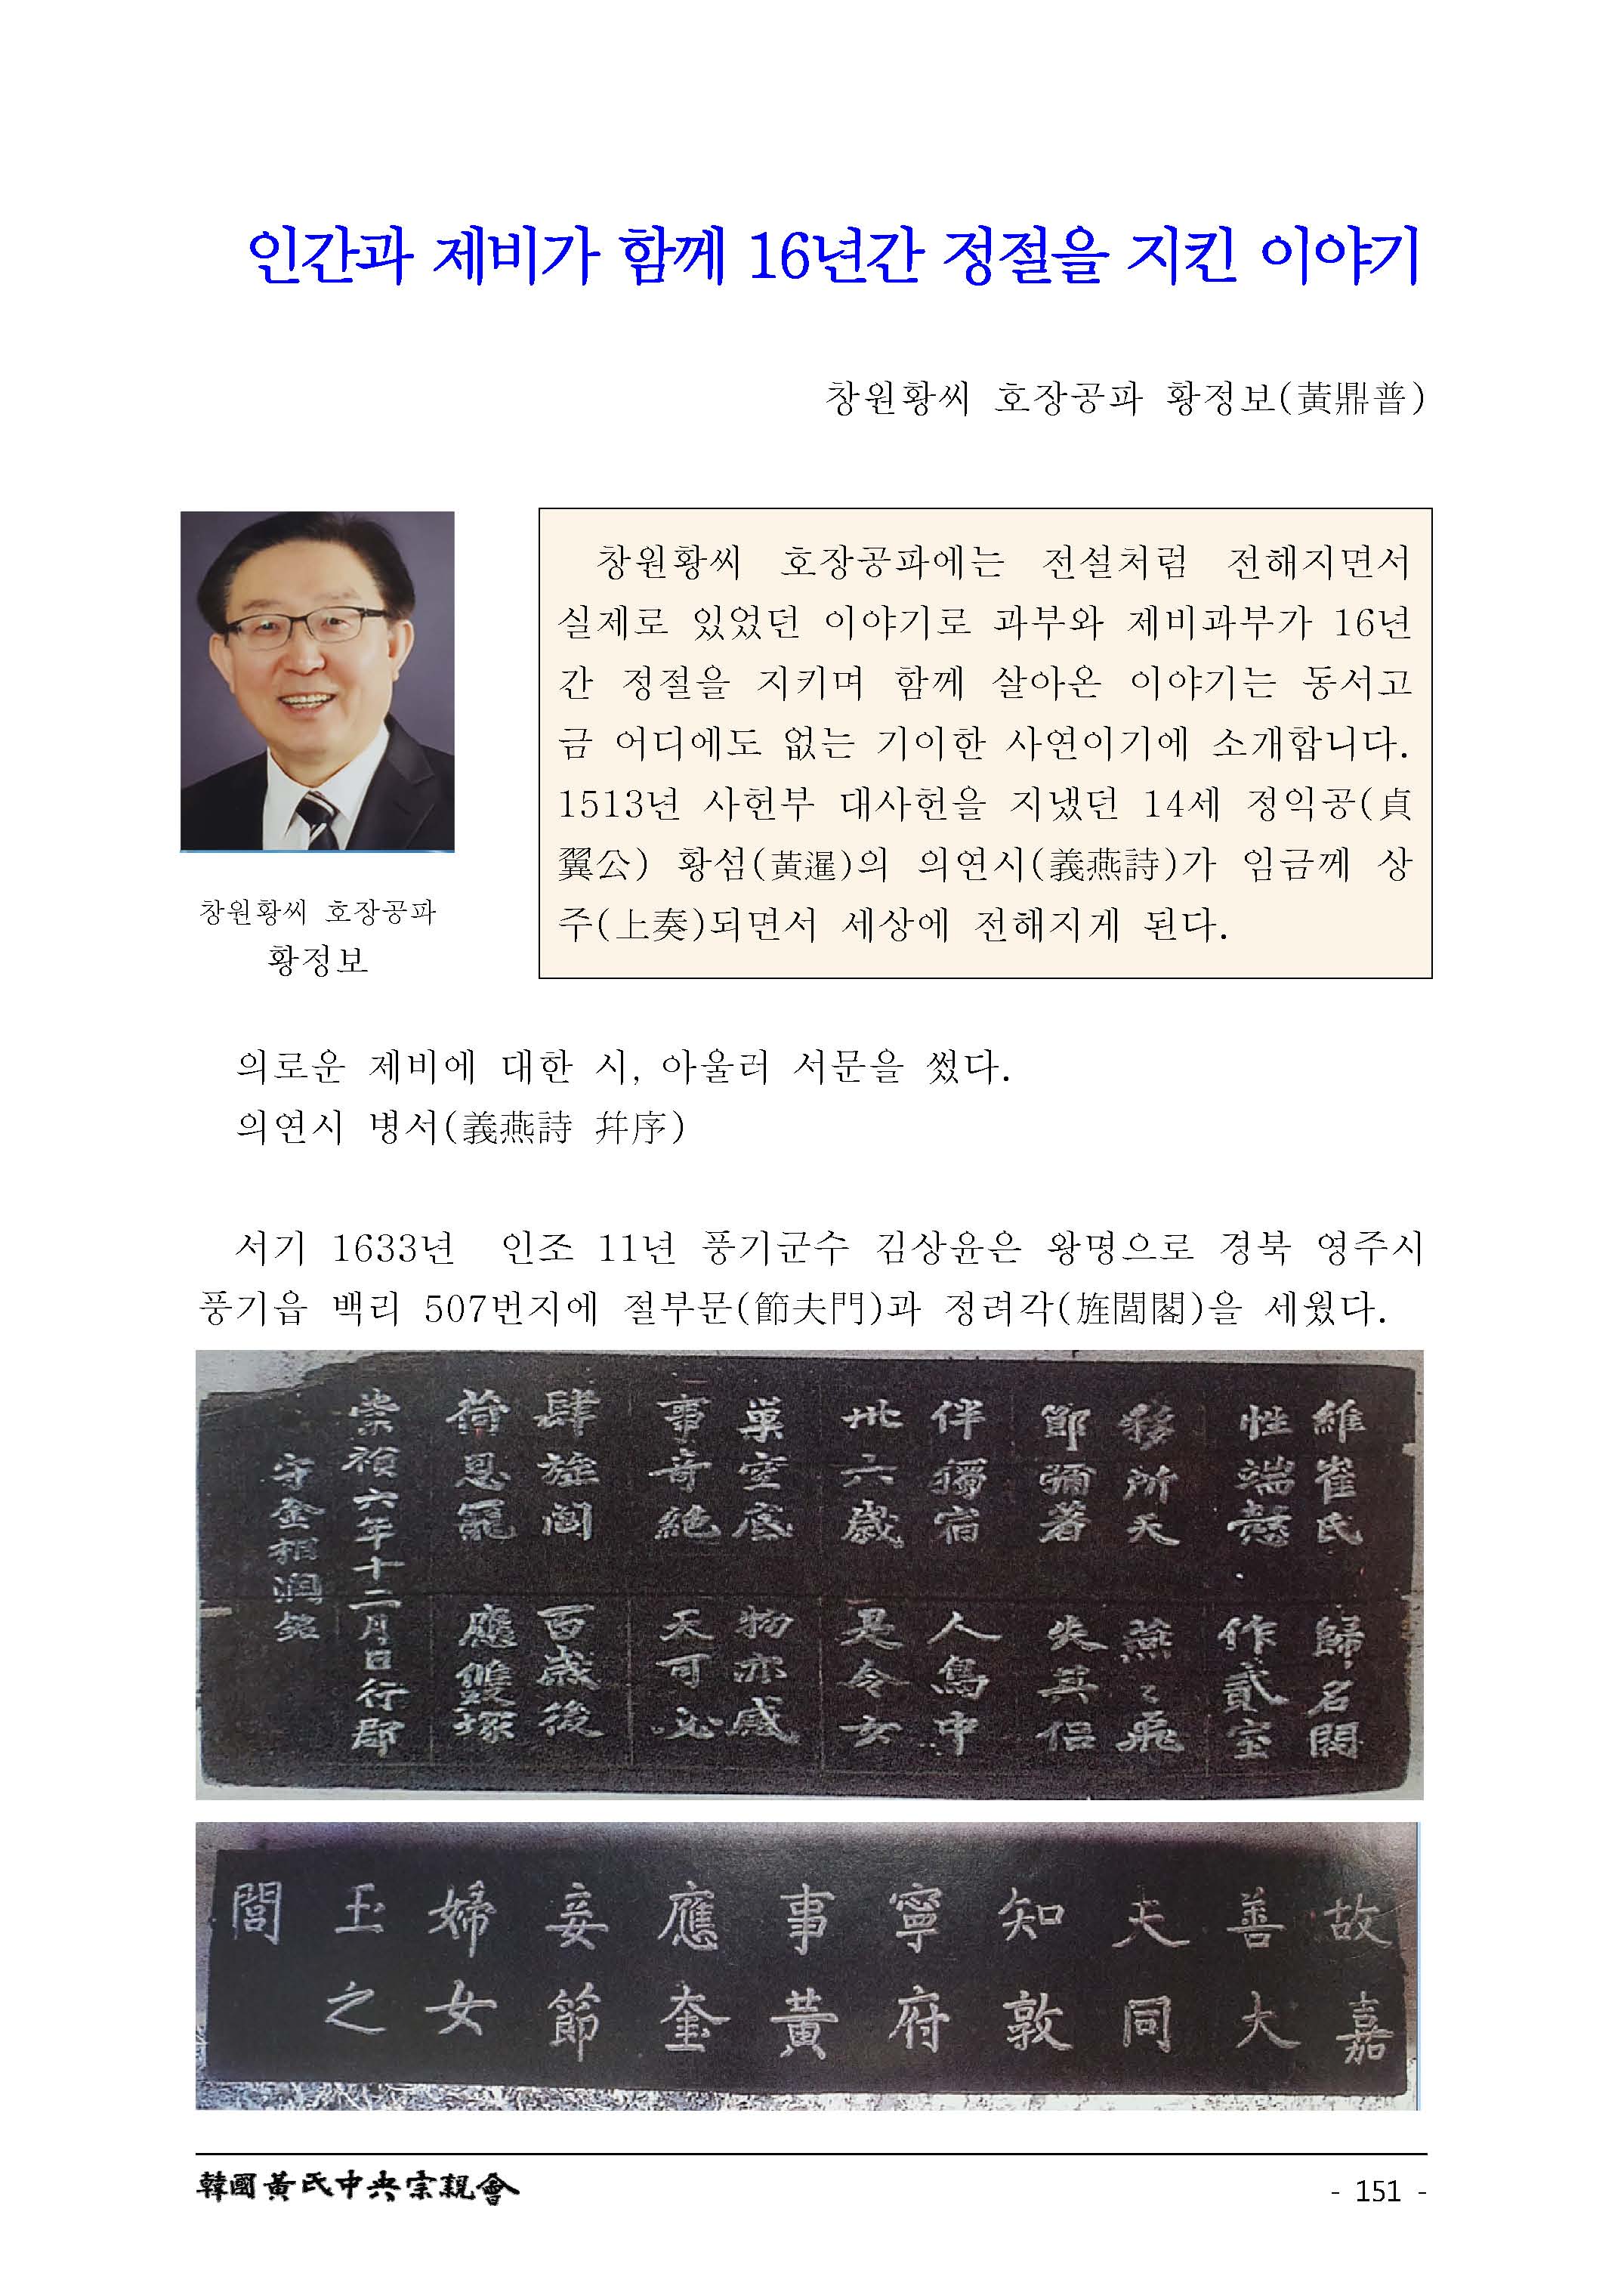 인간과 제비가 함께 16년간 정절을 지킨 이야기
창원황씨 호장공파 황정보(黃鼎普)
창원황씨 호장공파
황정보
창원황씨 호장공파에는 전설처럼 전해지면서
실제로 있었던 이야기로 과부와 제비과부가 16년
간 정절을 지키며 함께 살아온 이야기는 동서고
금 어디에도 없는 기이한 사연이기에 소개합니다.
1513년 사헌부 대사헌을 지냈던 14세 정익공(貞
翼公) 황섬(黃暹)의 의연시(義燕詩)가 임금께 상
주(上奏)되면서 세상에 전해지게 된다.
의로운 제비에 대한 시, 아울러 서문을 썼다.
의연시 병서(義燕詩 幷序)
서기 1633년 인조 11년 풍기군수 김상윤은 왕명으로 경북 영주시
풍기읍 백리 507번지에 절부문(節夫門)과 정려각(旌閭閣)을 세웠다.
維崔氏 歸名閥
性端慤 作貳室
移所天 燕〻飛
節彌著 失其侶
伴獨宿 人鳥中
六歲 是令女
巢空底 物亦感
事奇絶 天可必
肆旌閭 百歲後
荷恩寵 應雙塚
崇禎六年十二月日行郡
守金相潤銘
故嘉
善大
夫同
知敦
寧府
事黃
應奎
妾節
婦女
玉之
閭
韓國黃氏中央宗親會
- 151 -